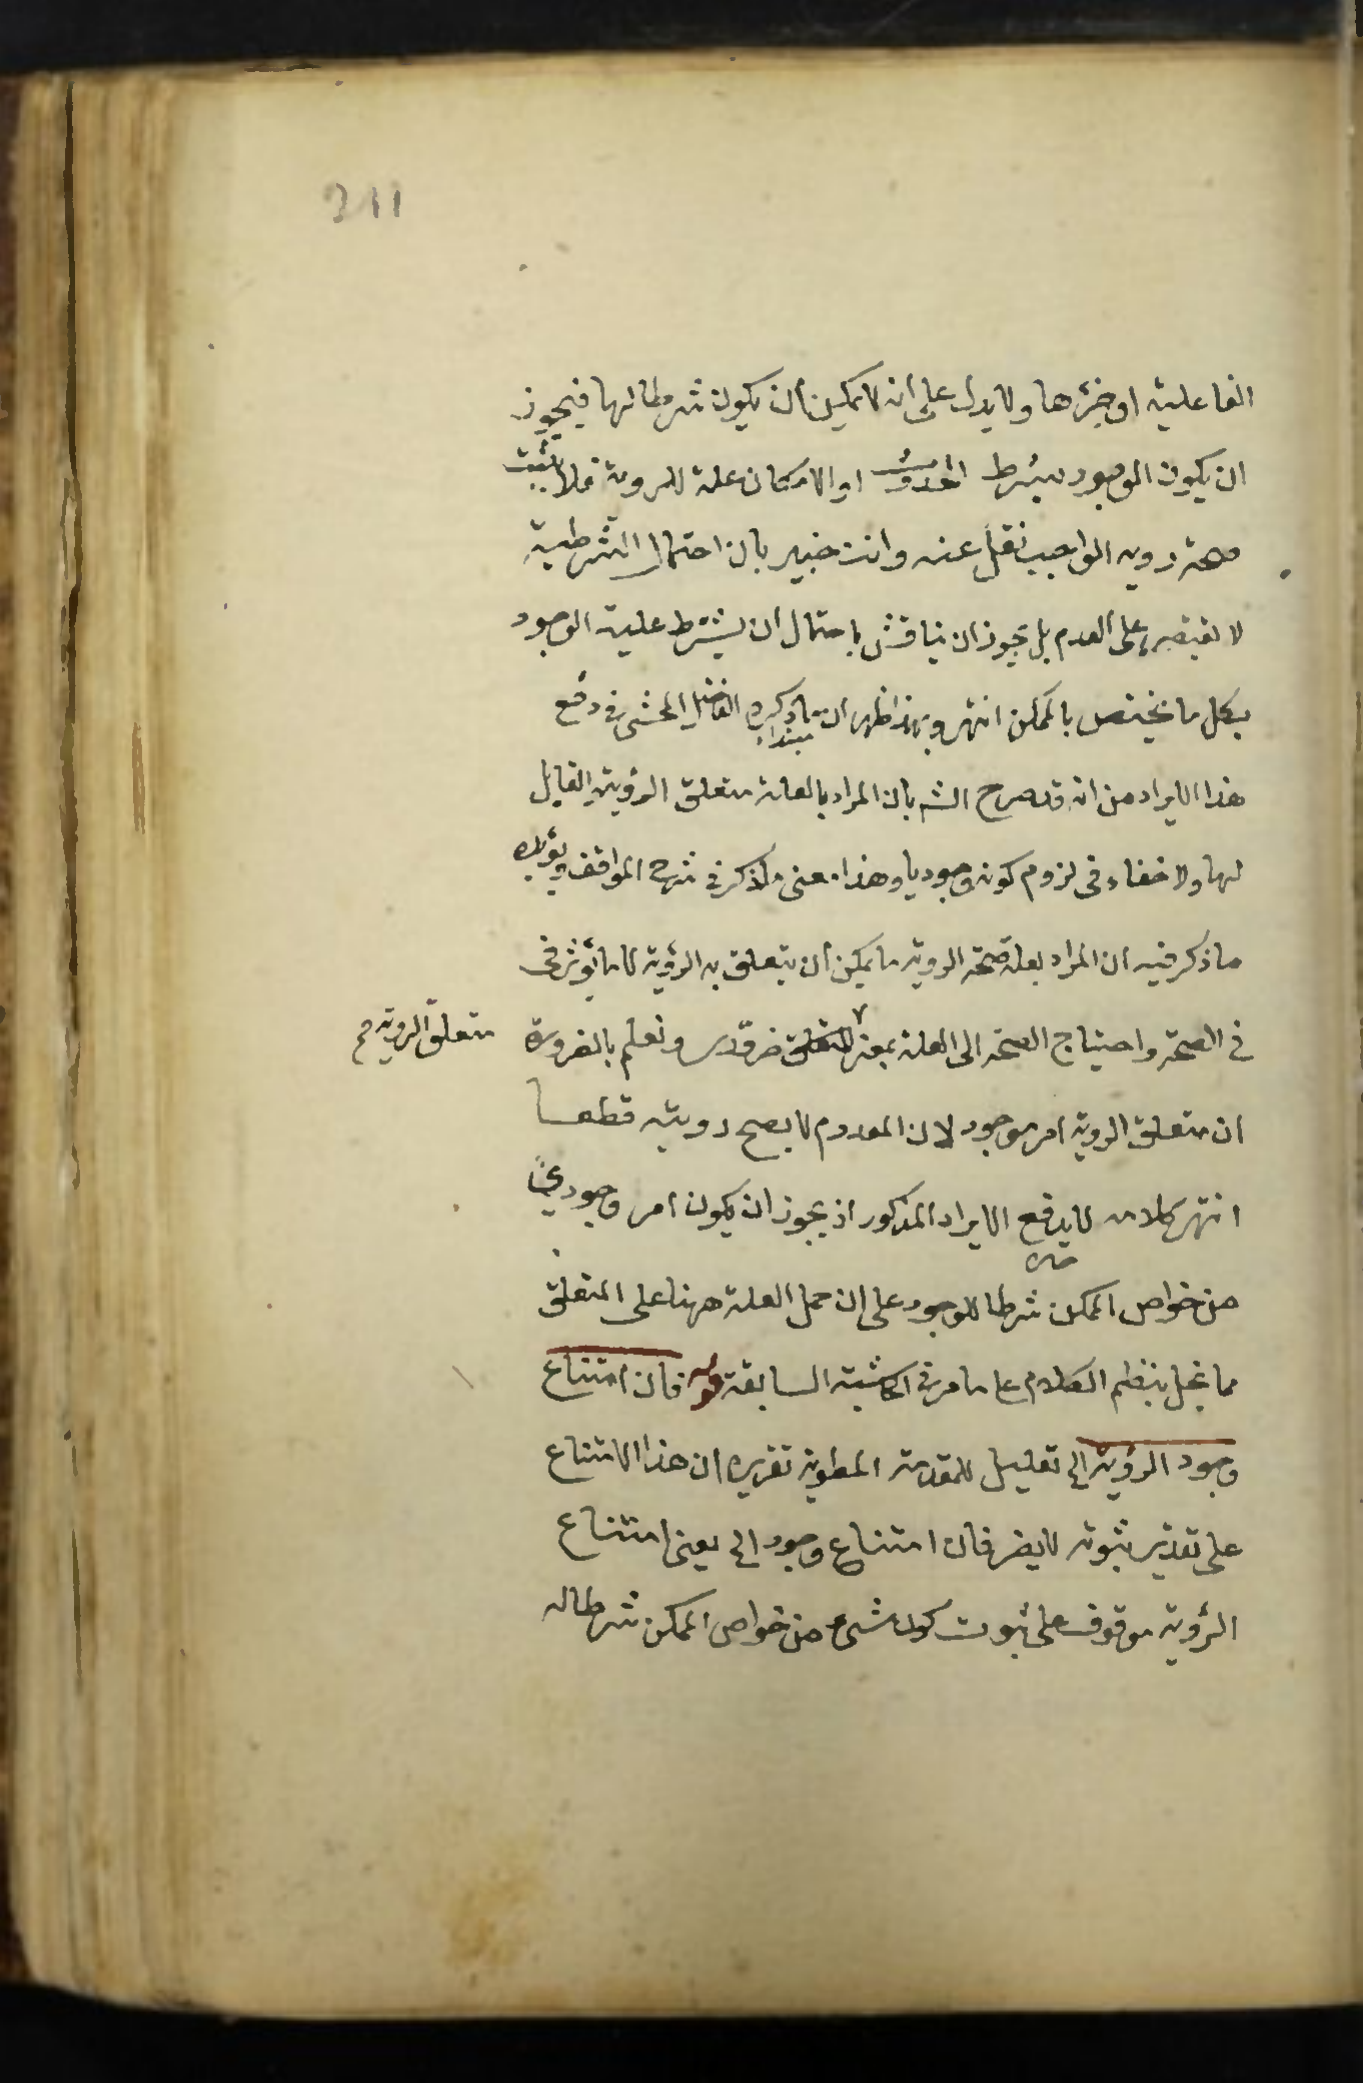 211
الفاعلية او جزءها ولا يدل على انه لا يمكن ان يكون شرطا لها فيجوز
ان يكون الموجود بشرط الحدوث او الامكان علة للروية فلا يثبت
صحة روية الواجب نقل عنه وانت خبير بان احتمال الشرطية
لا يقتصر على العدم بل يجوز ان يناقش باحتمال ان يشترط علية الوجود
بكل ما يختص بالممكن انتهى وبهذا ظهر ان ما ذكره الفاضل المحشى في دفع
مبتداء
هذا الايراد من انه قد صرح الش بان المراد بالعلة متعلق الرؤية والقابل
لها ولا خفاء في لزوم كونه وجوديا وهذا معنى ما ذكر في شرح المواقف ويؤيده
ما ذكر فيه ان المراد بعلة صحة الروية ما يمكن ان يتعلق به الرؤية لا ما يؤثر في
في الصحة واحتياج الصحة الى العلة بمعنى المتعلق ضرورى ونعلم بالضرورة
متعلق الروية صح
ان متعلق الروية امر موجود لان المعدوم لا يصح رويته قطعا
انتهى كلامه لا يدفع الايراد المذكور اذ يجوز ان يكون امر وجودي
خبره
من خواص الممكن شرطا للوجود على ان حمل العلة ههنا على المتعلق
مما يخل بنظم الكلام على ما مر في الحاشية السابقة قوله فان امتناع
وجود الرؤية الخ تعليل للمقدمة المطوية تقريره ان هذا الامتناع
على تقدير ثبوته لا يضر فان امتناع وجود الخ يعنى امتناع
الرؤية موقوف على ثبوت كون شىء من خواص الممكن شرطا له